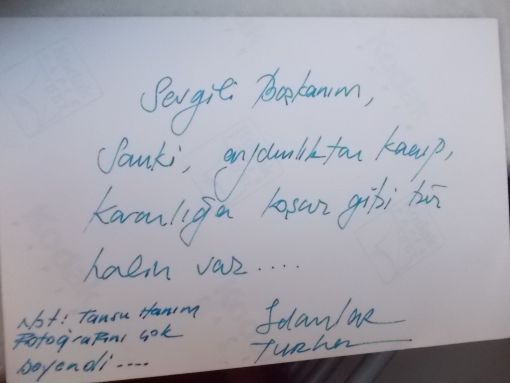 Sevgili Başkanım,
Sanki, aydınlıktan kaçıp,
karanlığa koşar gibi bir
halin var....
Not: Tansu Hanım
Fotoğrafını çok
beyendi....